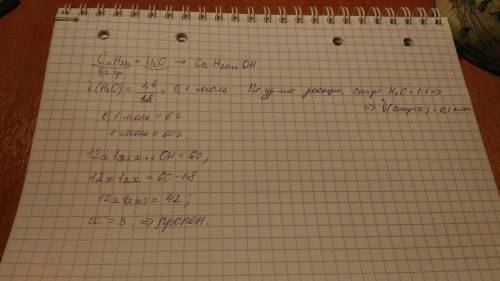 CnH2n + H2O → CnH2n+1OH
ν(H2O) = 1,8/18 = 0,1 моль По урав. реакции, спирт: H2O = 1:1 =>
=> ν(спирта) = 0,1 моль
0,1 моль = 6г
1 моль = 60г
12x + 2x + 1 OH = 60;
12x + 2x = 60 - 18
12x + 2x = 42;
x = 3. => пропен.